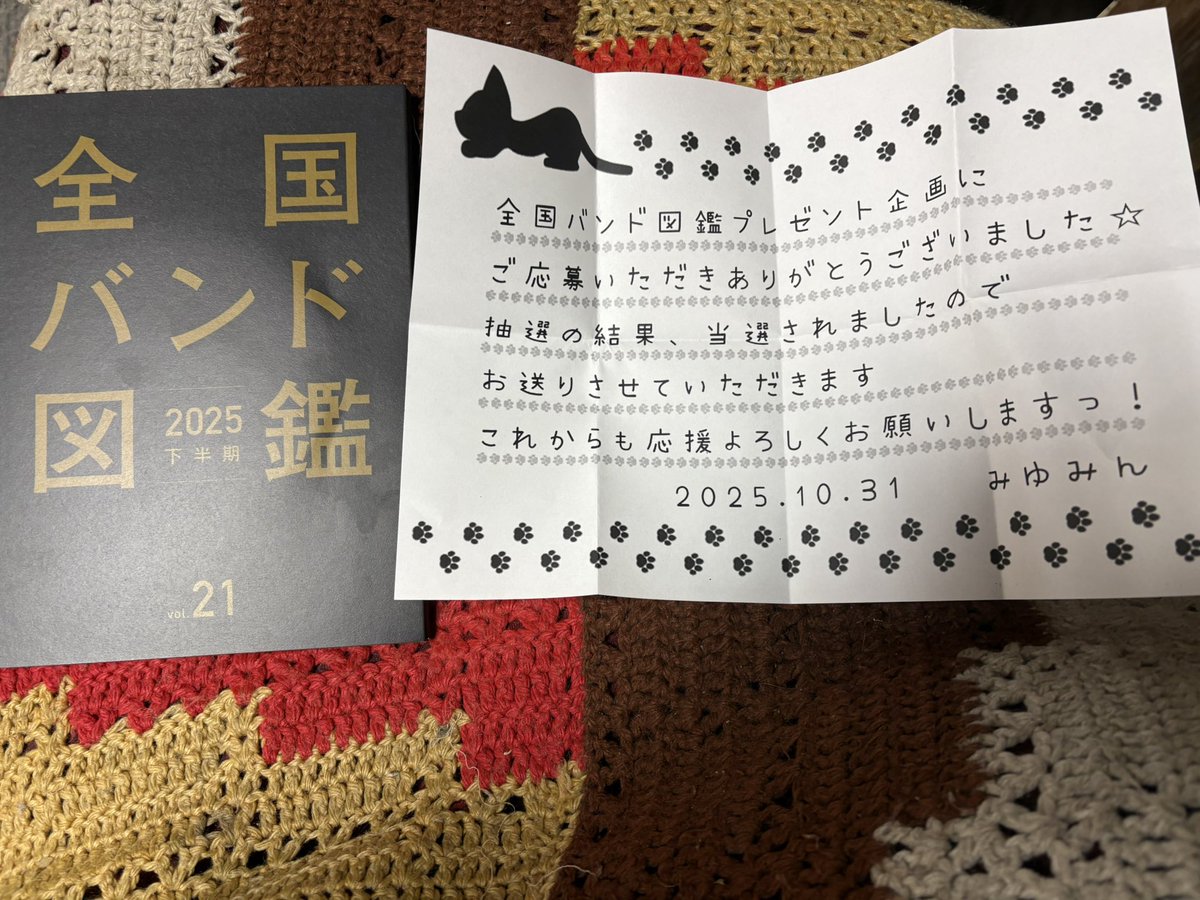 全国
バンド
図鑑
2025
下半期
vol.21
全国バンド図鑑プレゼント企画に
ご応募いただきありがとうございました☆
抽選の結果、当選されましたので
お送りさせていただきます
これからも応援よろしくお願いしますっ！
2025.10.31 みゆみん